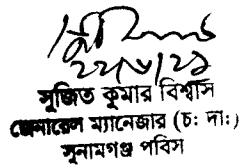 ২২/৮/২১
সুজিত কুমার বিশ্বাস
জেনারেল ম্যানেজার (চ: দা:)
সুনামগঞ্জ পবিস